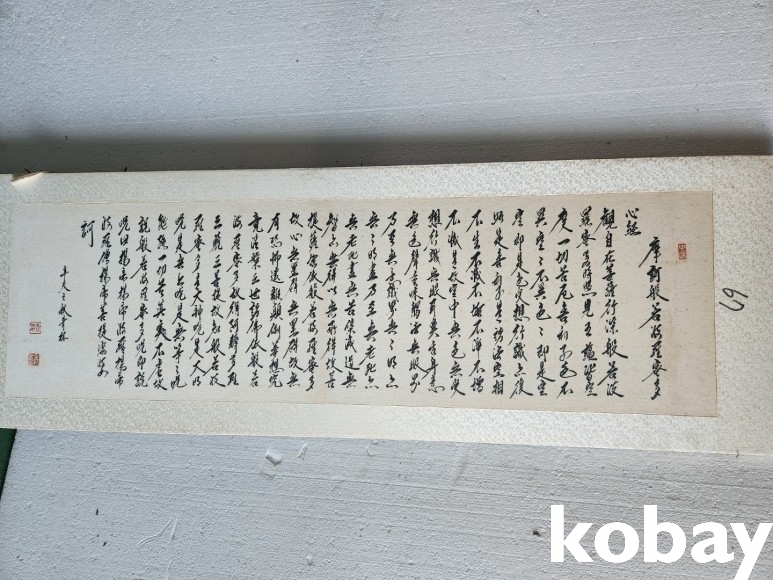 摩訶般若波羅蜜多
心經
觀自在菩薩行深般若波
羅蜜多時照見五蘊皆空
度一切苦厄舍利子色不
異空〻不異色〻即是空
空即是色受想行識亦復
如是舍利子是諸法空相
不生不滅不垢不淨不增
不減是故空中無色無受
想行識無眼耳鼻舌身意
無色聲香味觸法無眼界
乃至無意識界無〻明亦
無〻明盡乃至無老死亦
無老死盡無苦集滅道無
智亦無得以無所得故菩
提薩埵依般若波羅蜜多
故心無罣礙無罣礙故無
有恐怖遠離顛倒夢想究
竟涅槃三世諸佛依般若
波羅蜜多故得阿耨多羅
三藐三菩提故知般若波
羅蜜多是大神呪是大明
呪是無上呪是無等〻呪
能除一切苦真實不虛故
說般若波羅蜜多呪即說
呪曰揭帝揭帝波羅揭帝
波羅僧揭帝菩提娑婆
訶
69
kobay